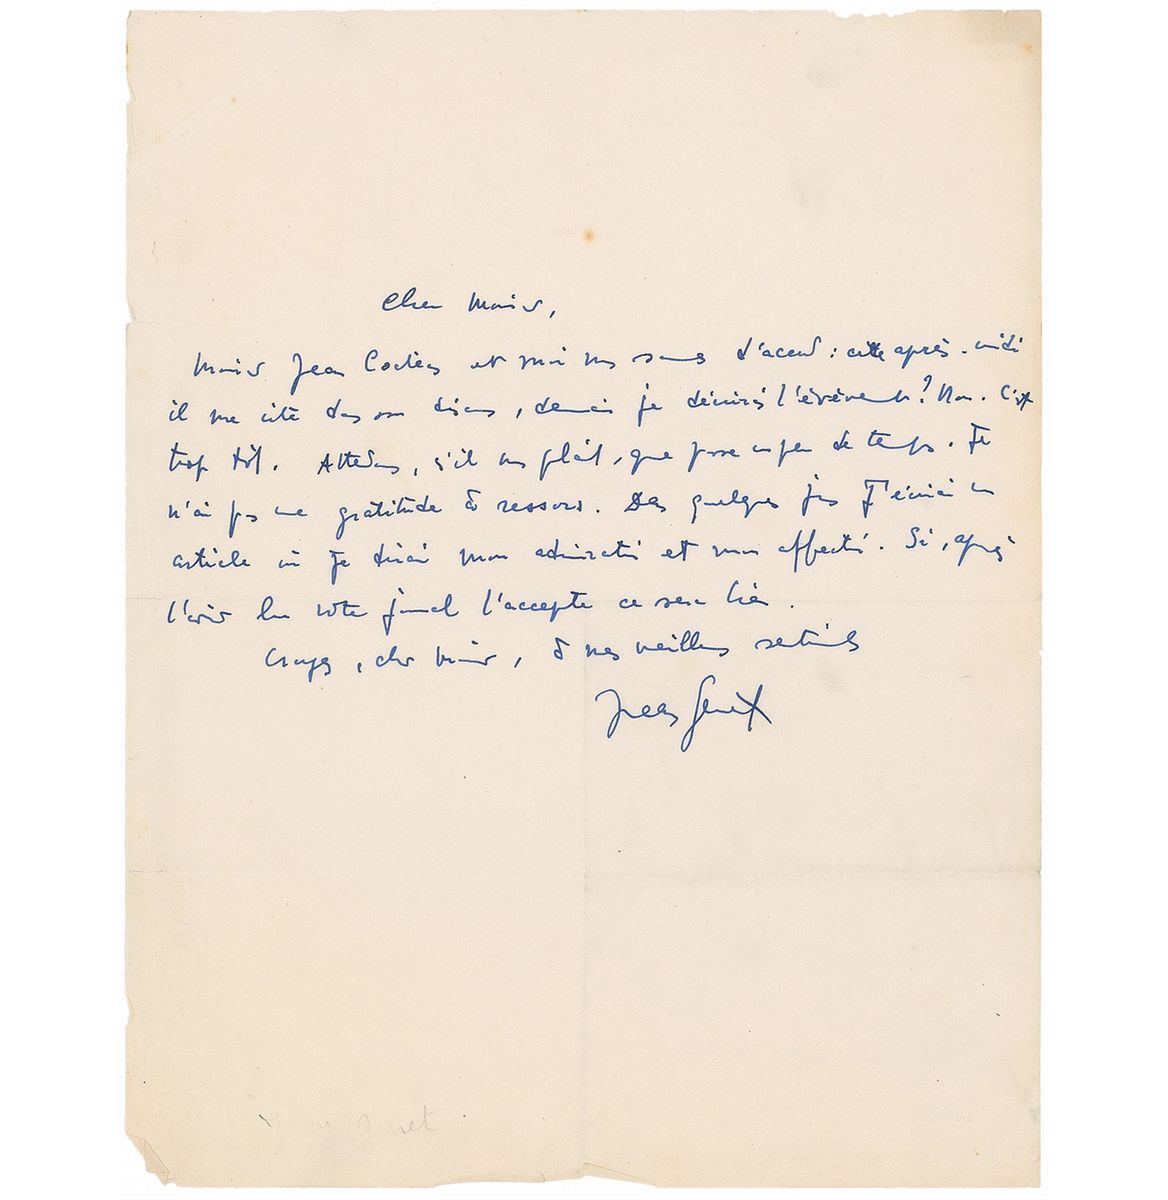 Cher Monsieur,
Monsieur Jean Cocteau et moi nous sommes d'accord : cette après-midi
il me cite dans son discours, demain je décrirais l'événement ? Non. C'est
trop tôt. Attendons, s'il vous plaît, que passe un peu de temps. Je
n'ai pas une gratitude à ressorts. Dans quelques jours j'écrirai un
article où je dirai mon admiration et mon affection. Si, après
l'avoir lu votre journal l'accepte ce sera bien.
Croyez, cher Monsieur, à mes meilleurs sentiments
Jean Genet
Jean Genet